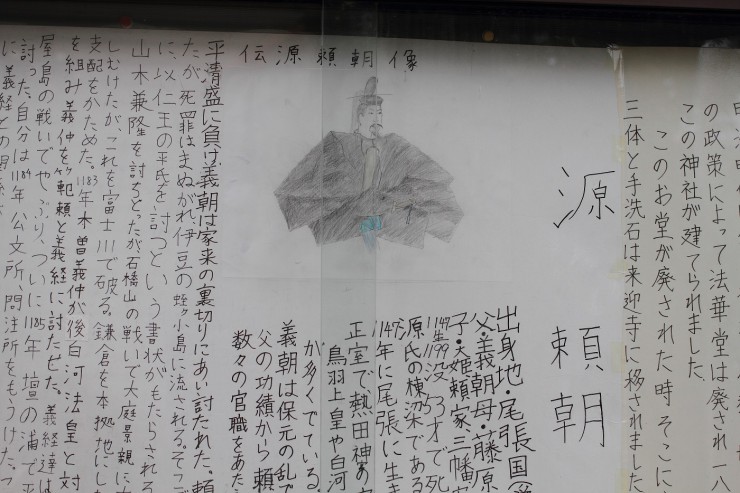 の政策によって法華堂は廃され一八
この神社が建てられました
このお堂が廃された時そこに
三体と手洗石は来迎寺に移されました
源頼朝
出身地・尾張国
父・義朝母・藤原
子・大姫頼家三幡
53才で死
源氏の棟梁である
1147年に尾張に生
正室で熱田神の
鳥羽上皇や白河
が多くでている。
義朝は保元の乱で
父の功績から頼
数々の官職をあた
伝源頼朝像
平清盛に負け義朝は家来の裏切りにあい討たれた。頼
たが死罪はまぬがれ伊豆の蛭ヶ小島に流される。そこ
に、以仁王の平氏を討つという書状がもたらされる
山木兼隆を討ちとったが石橋山の戦いで大庭景親に
しむけたが、これを富士川で破る。鎌倉を本拠地にし
支配をかためた。1183年木曽義仲が後白河法皇と対
を組み義仲を範頼と義経に討たせた。義経達は
屋島の戦いでやぶり、ついに1185年壇の浦で平
討った。自分は1184年公文所、問注所をもうけた。
に義経との